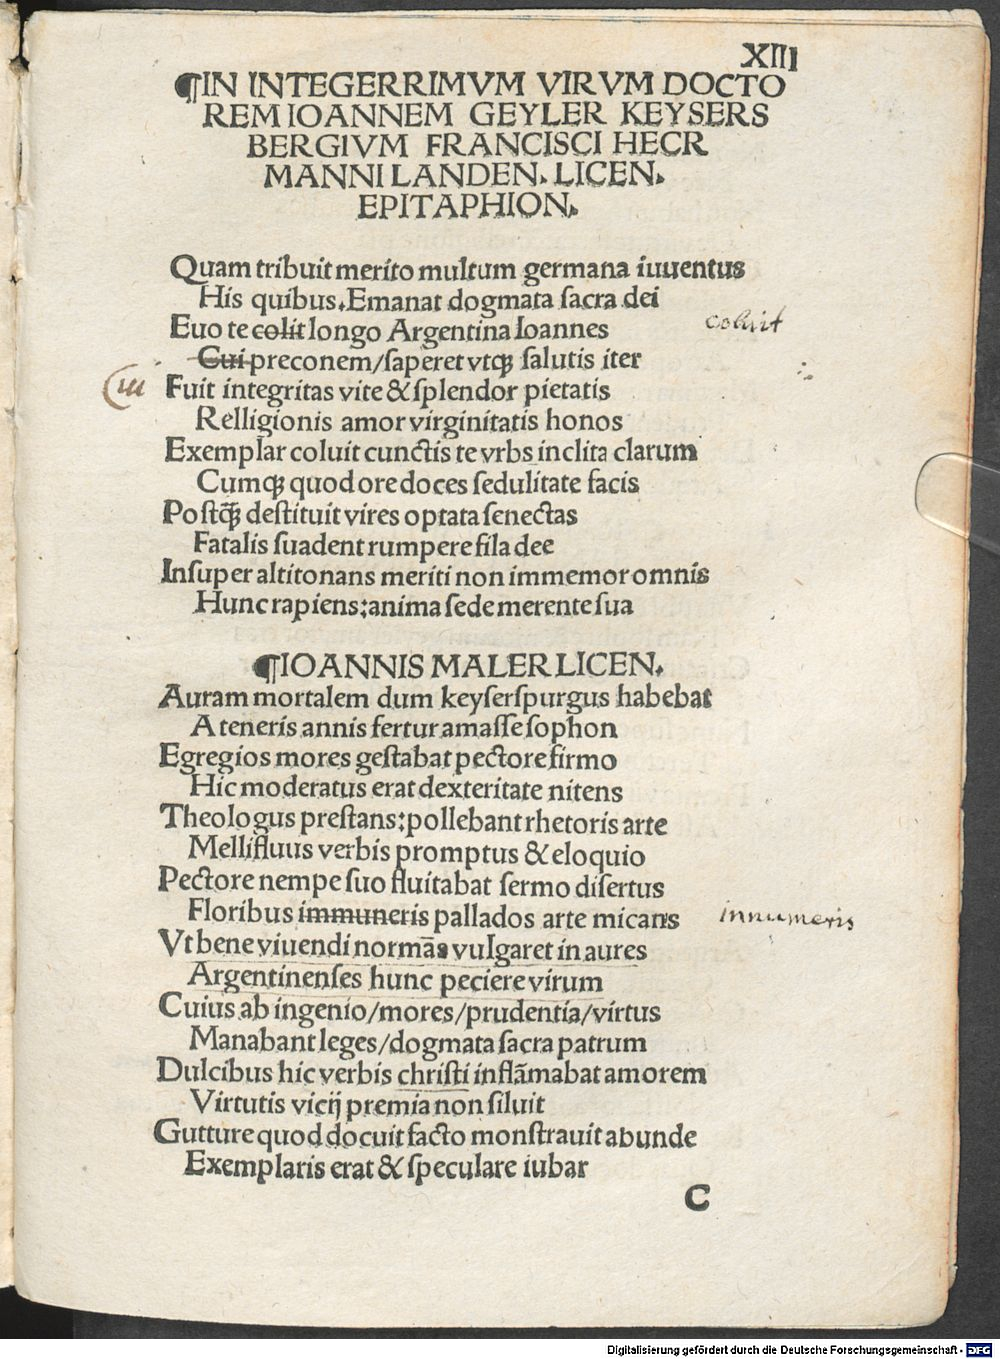 XIII
¶IN INTEGERRIMVM VIRVM DOCTO
REM IOANNEM GEYLER KEYSERS
BERGIVM FRANCISCI HECR
MANNI LANDEN. LICEN.
EPITAPHION.
Quam tribuit merito multum germana iuuentus
His quibus. Emanat dogmata sacra dei
Euo te colit longo Argentina Ioannes
coluit
Cui preconem/saperet vtqꝫ salutis iter
iii
Fuit integritas vite & splendor pietatis
Relligionis amor virginitatis honos
Exemplar coluit cunctis te vrbs inclita clarum
Cumqꝫ quod ore doces sedulitate facis
Postq̄ꝫ destituit vires optata senectas
Fatalis suadent rumpere fila dee
Insuper altitonans meriti non immemor omnis
Hunc rapiens: anima sede merente sua
¶IOANNIS MALER LICEN.
Auram mortalem dum keyserspurgus habebat
A teneris annis fertur amasse sophon
Egregios mores gestabat pectore firmo
Hic moderatus erat dexteritate nitens
Theologus prestans: pollebant rhetoris arte
Mellifluus verbis promptus & eloquio
Pectore nempe suo fluitabat sermo disertus
Floribus immuneris pallados arte micans
innumeris
Vt bene viuendi normā vulgaret in aures
Argentinenses hunc peciere virum
Cuius ab ingenio/mores/prudentia/virtus
Manabant leges/dogmata sacra patrum
Dulcibus hic verbis christi inflāmabat amorem
Virtutis vicij premia non siluit
Gutture quod docuit facto monstrauit abunde
Exemplaris erat & speculare iubar
C
Digitalisierung gefördert durch die Deutsche Forschungsgemeinschaft - DFG